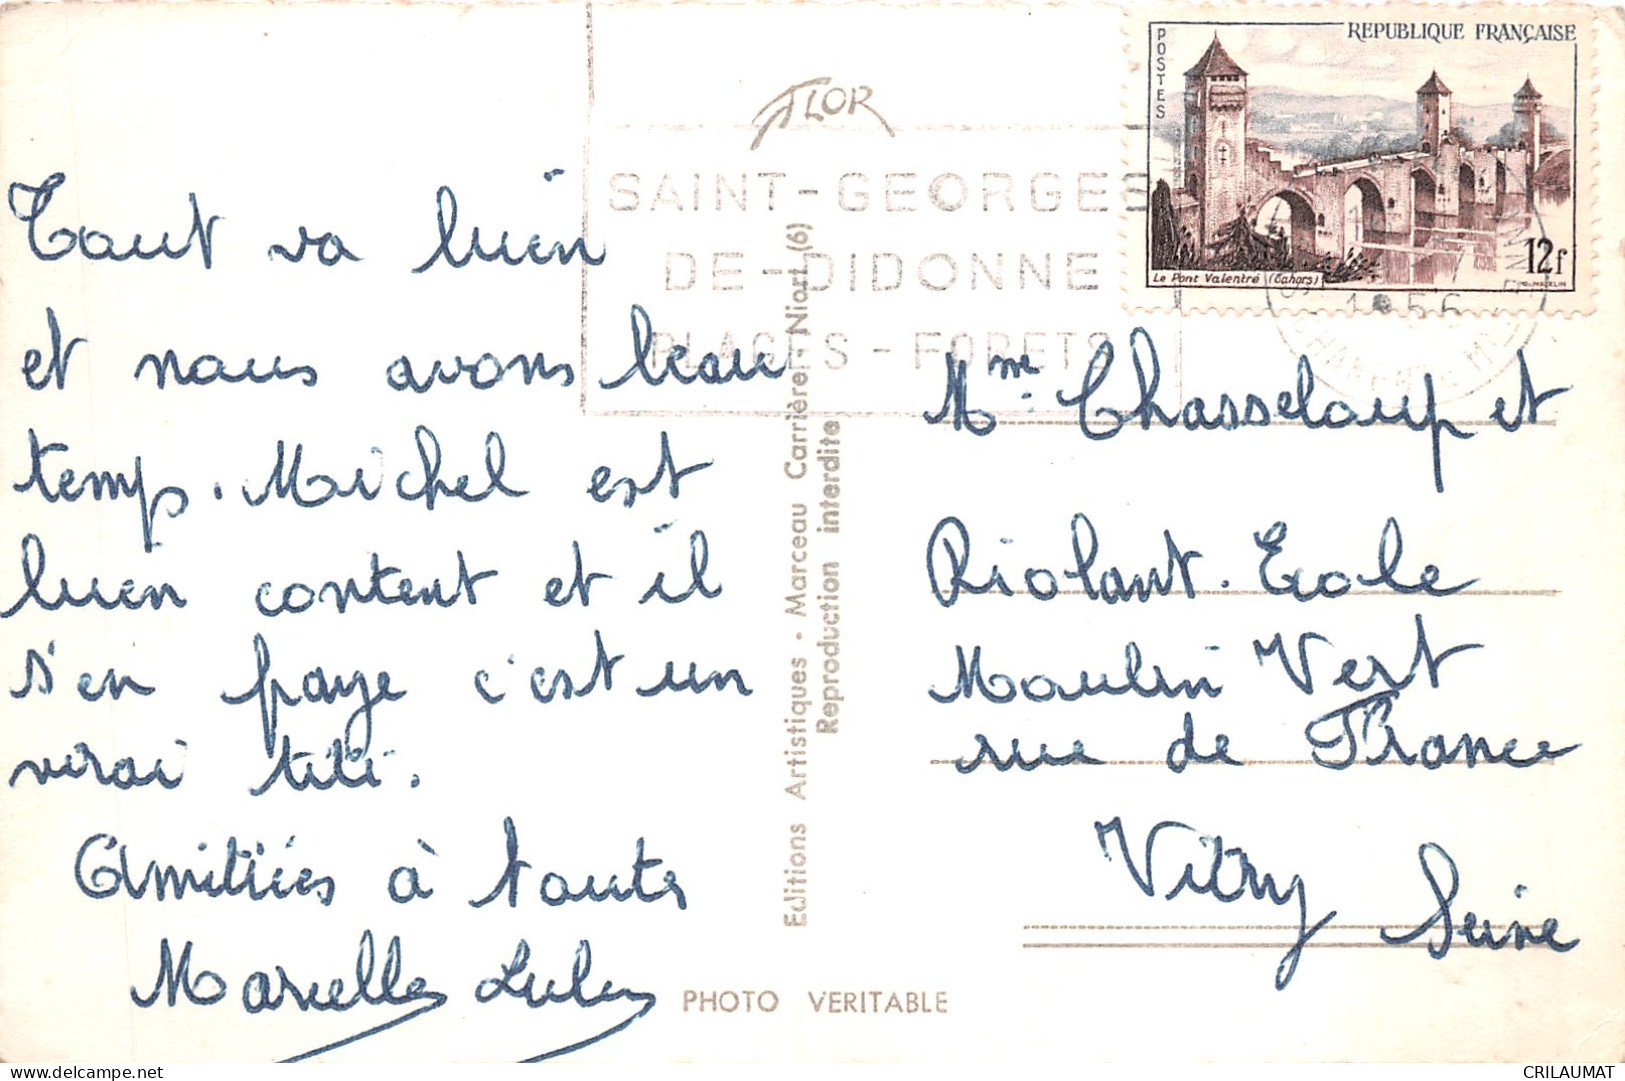 Tout va bien
et nous avons beau
temps. Michel est
bien content et il
s'en paye c'est un
vrai titi.
Amitiées à toutes
Marcelle Lulu
FLOR
SAINT-GEORGES
DE-DIDONNE
PLAGES - FORETS
Editions Artistiques - Marceau Carrière, Niort (6)
Reproduction interdite
PHOTO VERITABLE
POSTES
REPUBLIQUE FRANÇAISE
12f
Le Pont Valentré (Cahors)
1956
Mme Chasseloup et
Riolant. Ecole
Moulin Vert
rue de France
Vitry Seine
CRILAUMAT